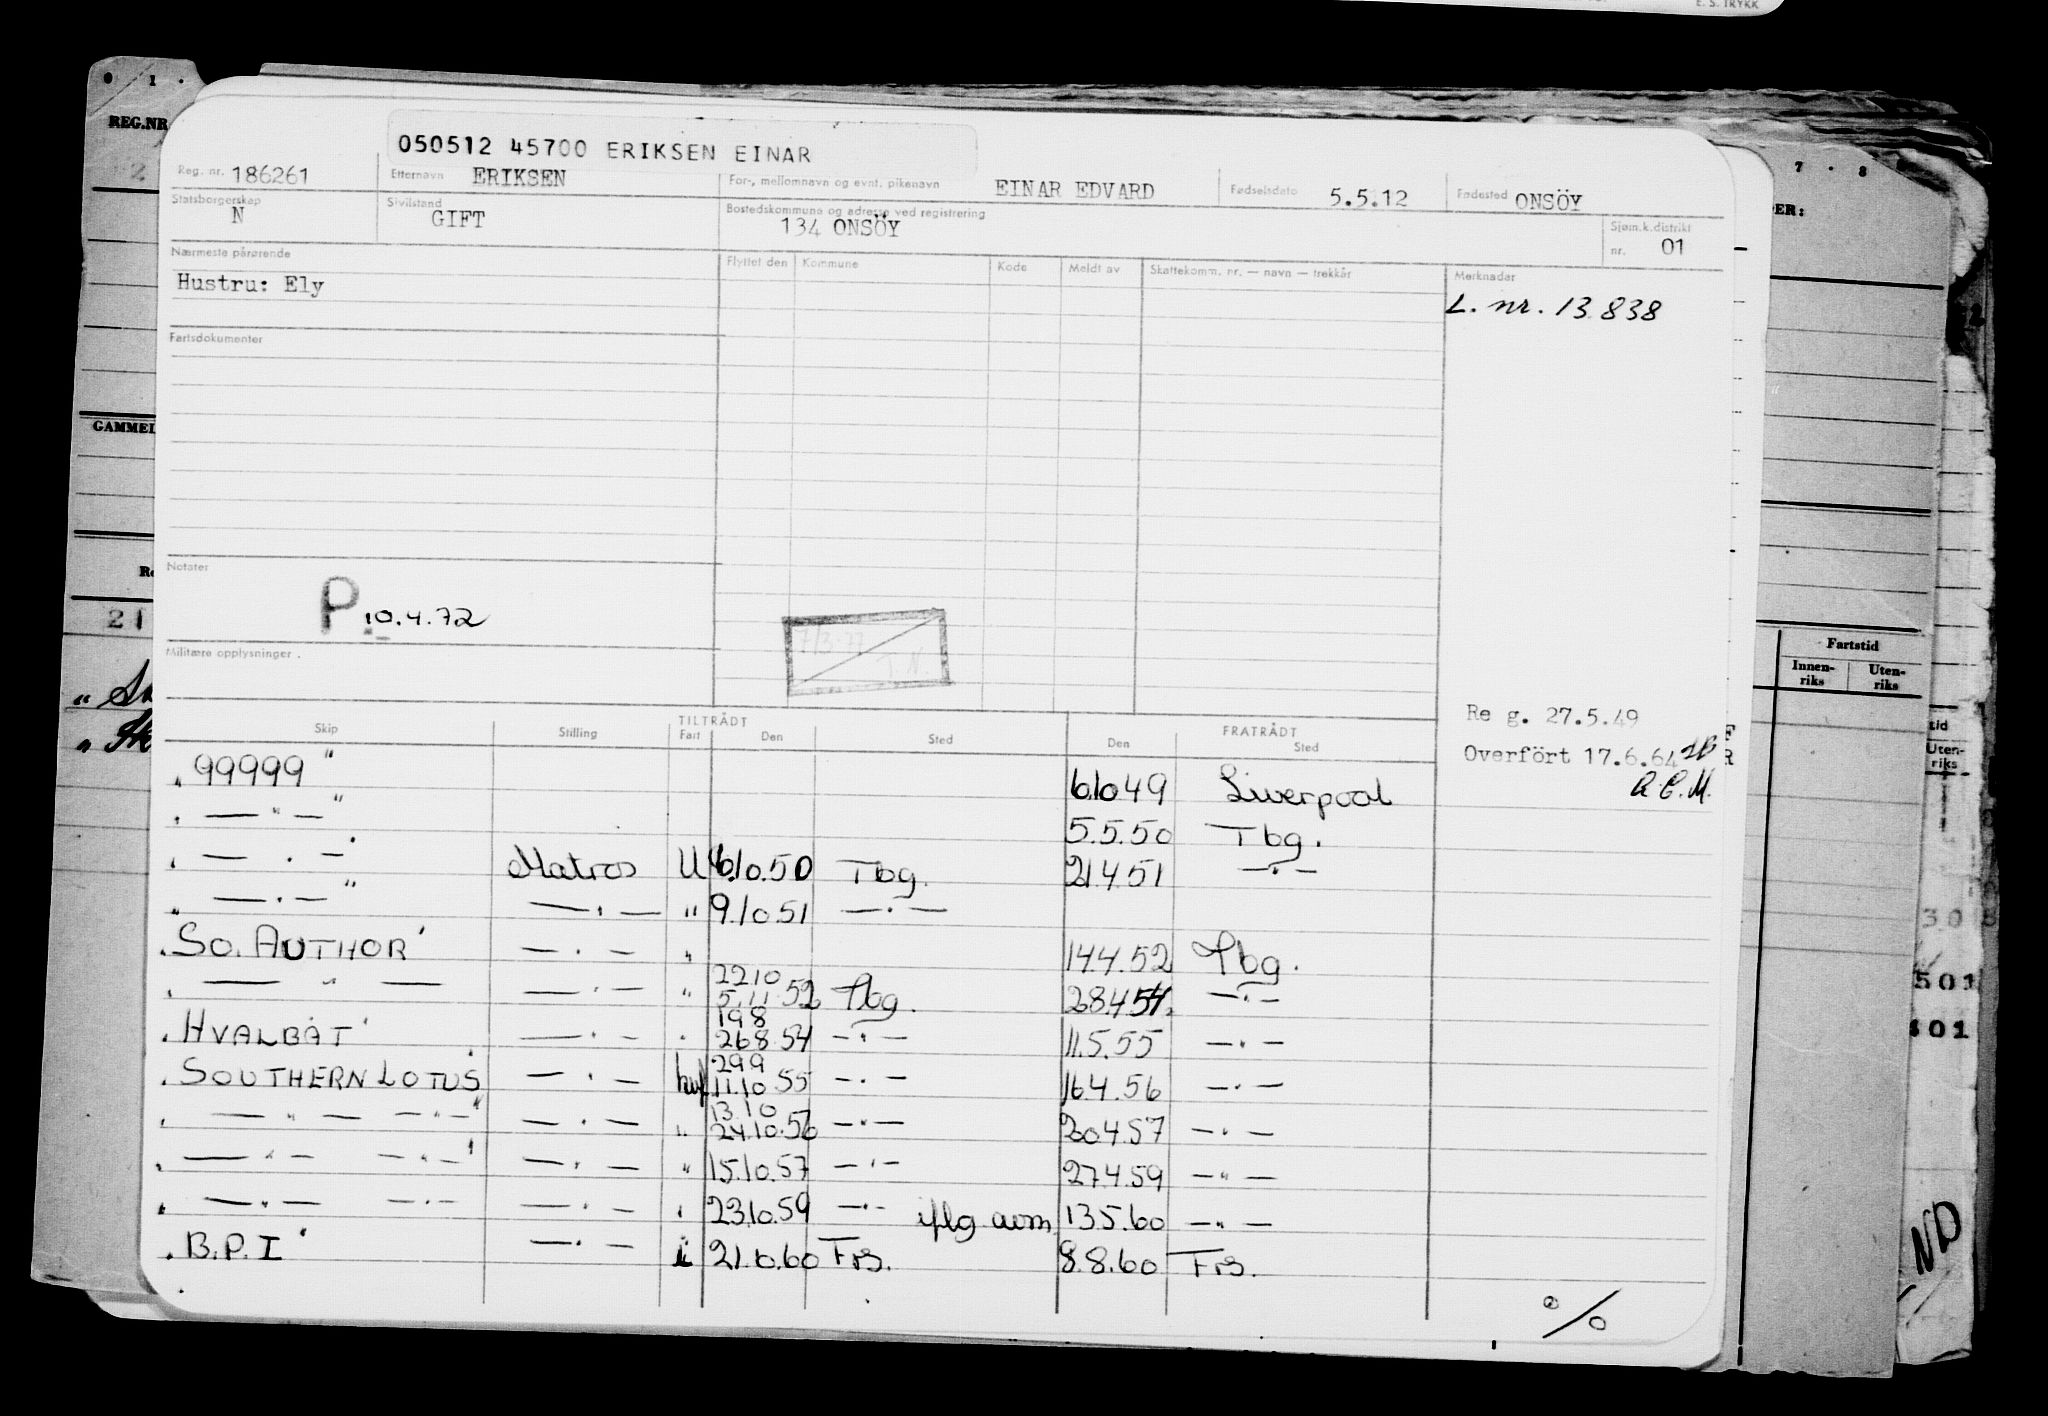 E. S. TRYKK
0 1 .
REG.NR
050512 45700 ERIKSEN EINAR
Reg. nr. 186261 Etternavn ERIKSEN For-, mellomnavn og evnt. pikenavn EINAR EDVARD Fødselsdato 5.5.12 Fødested ONSÖY
7 . 8
Statsborgerskap N Sivilstand GIFT Bostedskommune og adresse ved registrering 134 ONSÖY Sjøm.k.distrikt nr. 01
Nærmeste pårørende Flyttet den Kommune Kode Meldt av Skattekomm. nr. — navn — trekkår Merknader
Hustru: Ely
L. nr. 13.838
Fartsdokumenter
GAMMEL
Notater
P 10.4.72
21
Militære opplysninger .
Fartstid
Innen-riks Uten-riks
Re g. 27.5.49
Overfört 17.6.64
TILTRÅDT FRATRÅDT
Skip Stilling Fart Den Sted Den Sted
" 99999 " 6.10.49 Liverpool
" — " — " 5.5.50 Tbg.
" — " — " Matros U 6.10.50 Tbg. 21.4.51 — " —
" — " — " — " — " 9.10.51 — " —
" SO. AUTHOR " — " — " 14.4.52 Tbg.
" — " — — " — " 22.10 5.11.52 Tbg. 28.4.54 — " —
" HVALBÅT " — " — " 19.8 26.8.54 — " — 11.5.55 — " —
" SOUTHERN LOTUS " — " — hvf 29.9 11.10.55 — " — 16.4.56 — " —
" — " — — " — " — " — " 13.10 24.10.56 — " — 20.4.57 — " —
" — " — — " — " — " — " 15.10.57 — " — 27.4.59 — " —
" — " — — " — — " — " 23.10.59 — " — iflg avm. 13.5.60 — " —
" B.P. I " — " — i 21.6.60 Frs. 8.8.60 Frs.
501
401
ND